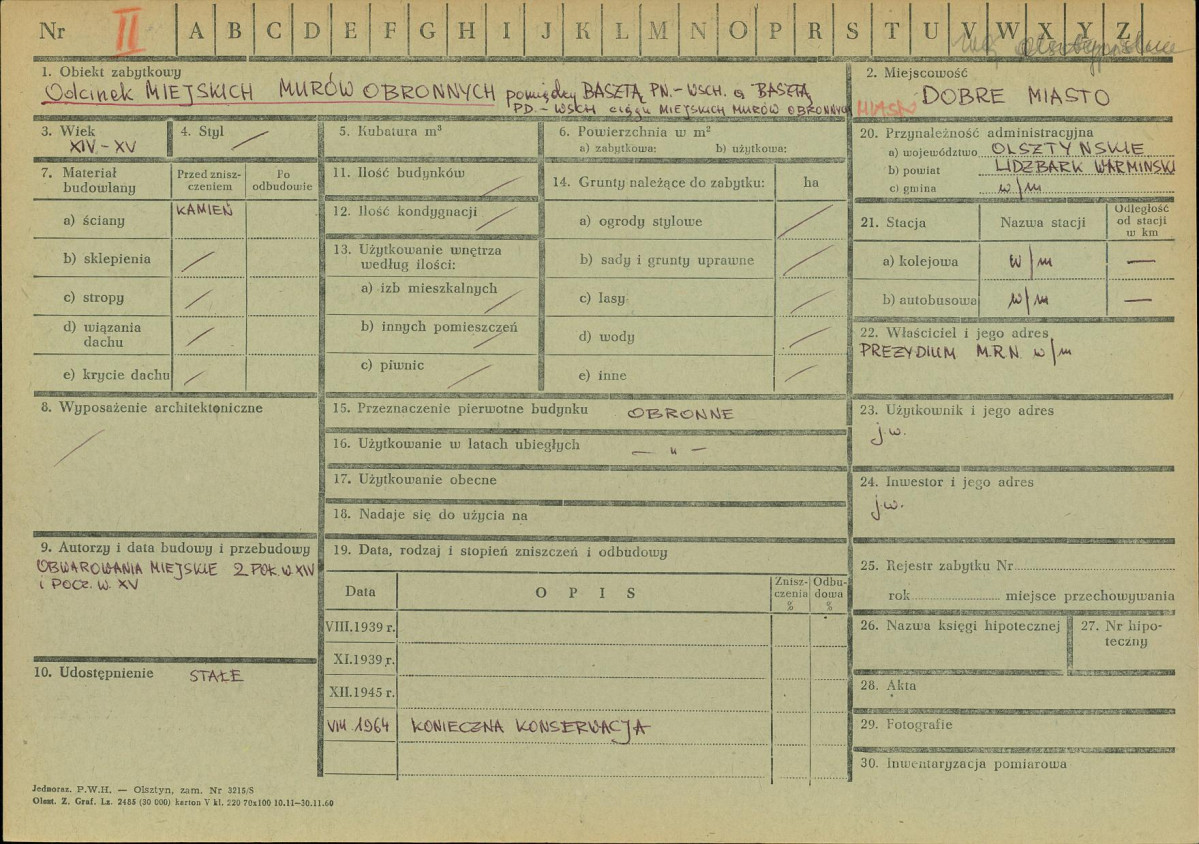 Nr II A B C D E F G H I J K L M N O P R S T U V W X Y Z
1. Obiekt zabytkowy
Odcinek MIEJSKICH MURÓW OBRONNYCH pomiędzy BASZTĄ PN.-WSCH. a BASZTĄ
PD.-WSCH ciągu MIEJSKICH MURÓW OBRONNYCH
2. Miejscowość
MIASTO
DOBRE MIASTO
3. Wiek
XIV - XV
4. Styl
5. Kubatura m³
6. Powierzchnia w m²
a) zabytkowa: b) użytkowa:
7. Materiał budowlany
Przed znisz-
czeniem
Po
odbudowie
a) ściany
KAMIEŃ
b) sklepienia
c) stropy
d) wiązania
dachu
e) krycie dachu
8. Wyposażenie architektoniczne
9. Autorzy i data budowy i przebudowy
OBWAROWANIA MIEJSKIE 2 POŁ. W. XIV
i POCZ. W. XV
10. Udostępnienie STAŁE
11. Ilość budynków
12. Ilość kondygnacji
13. Użytkowanie wnętrza
według ilości:
a) izb mieszkalnych
b) innych pomieszczeń
c) piwnic
14. Grunty należące do zabytku: ha
a) ogrody stylowe
b) sady i grunty uprawne
c) lasy
d) wody
e) inne
15. Przeznaczenie pierwotne budynku OBRONNE
16. Użytkowanie w latach ubiegłych — „ —
17. Użytkowanie obecne
18. Nadaje się do użycia na
19. Data, rodzaj i stopień zniszczeń i odbudowy
Data
O P I S
Znisz-
czenia
%
Odbu-
dowa
%
VIII.1939 r.
XI.1939 r.
XII.1945 r.
VIII 1964 KONIECZNA KONSERWACJA
20. Przynależność administracyjna
a) województwo OLSZTYŃSKIE
b) powiat LIDZBARK WARMIŃSKI
c) gmina w/m
21. Stacja
Nazwa stacji
Odległość
od stacji
w km
a) kolejowa w/m —
b) autobusowa w/m —
22. Właściciel i jego adres
PREZYDIUM M.R.N w/m
23. Użytkownik i jego adres
j.w.
24. Inwestor i jego adres
j.w.
25. Rejestr zabytku Nr
rok miejsce przechowywania
26. Nazwa księgi hipotecznej
27. Nr hipo-
teczny
28. Akta
29. Fotografie
30. Inwentaryzacja pomiarowa
Jednoraz. P.W.H. — Olsztyn, zam. Nr 3215/S
Olszt. Z. Graf. Ls. 2485 (30 000) karton V kl. 220 70x100 10.11—30.11.60